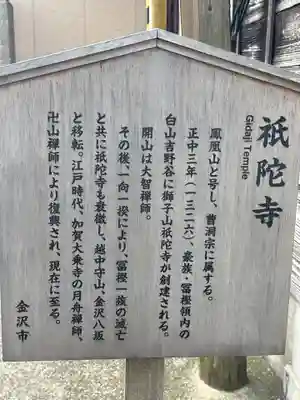 祇陀寺
Gidaji Temple
鳳凰山と号し、曹洞宗に属する。
正中三年（一三二六）、豪族・冨樫領内の
白山吉野谷に獅子山祇陀寺が創建される。
開山は大智禅師。
その後、一向一揆により、冨樫一族の滅亡
と共に祇陀寺も衰微し、越中守山、金沢八坂
と移転。江戸時代、加賀大乗寺の月舟禅師、
卍山禅師により復興され、現在に至る。
金沢市